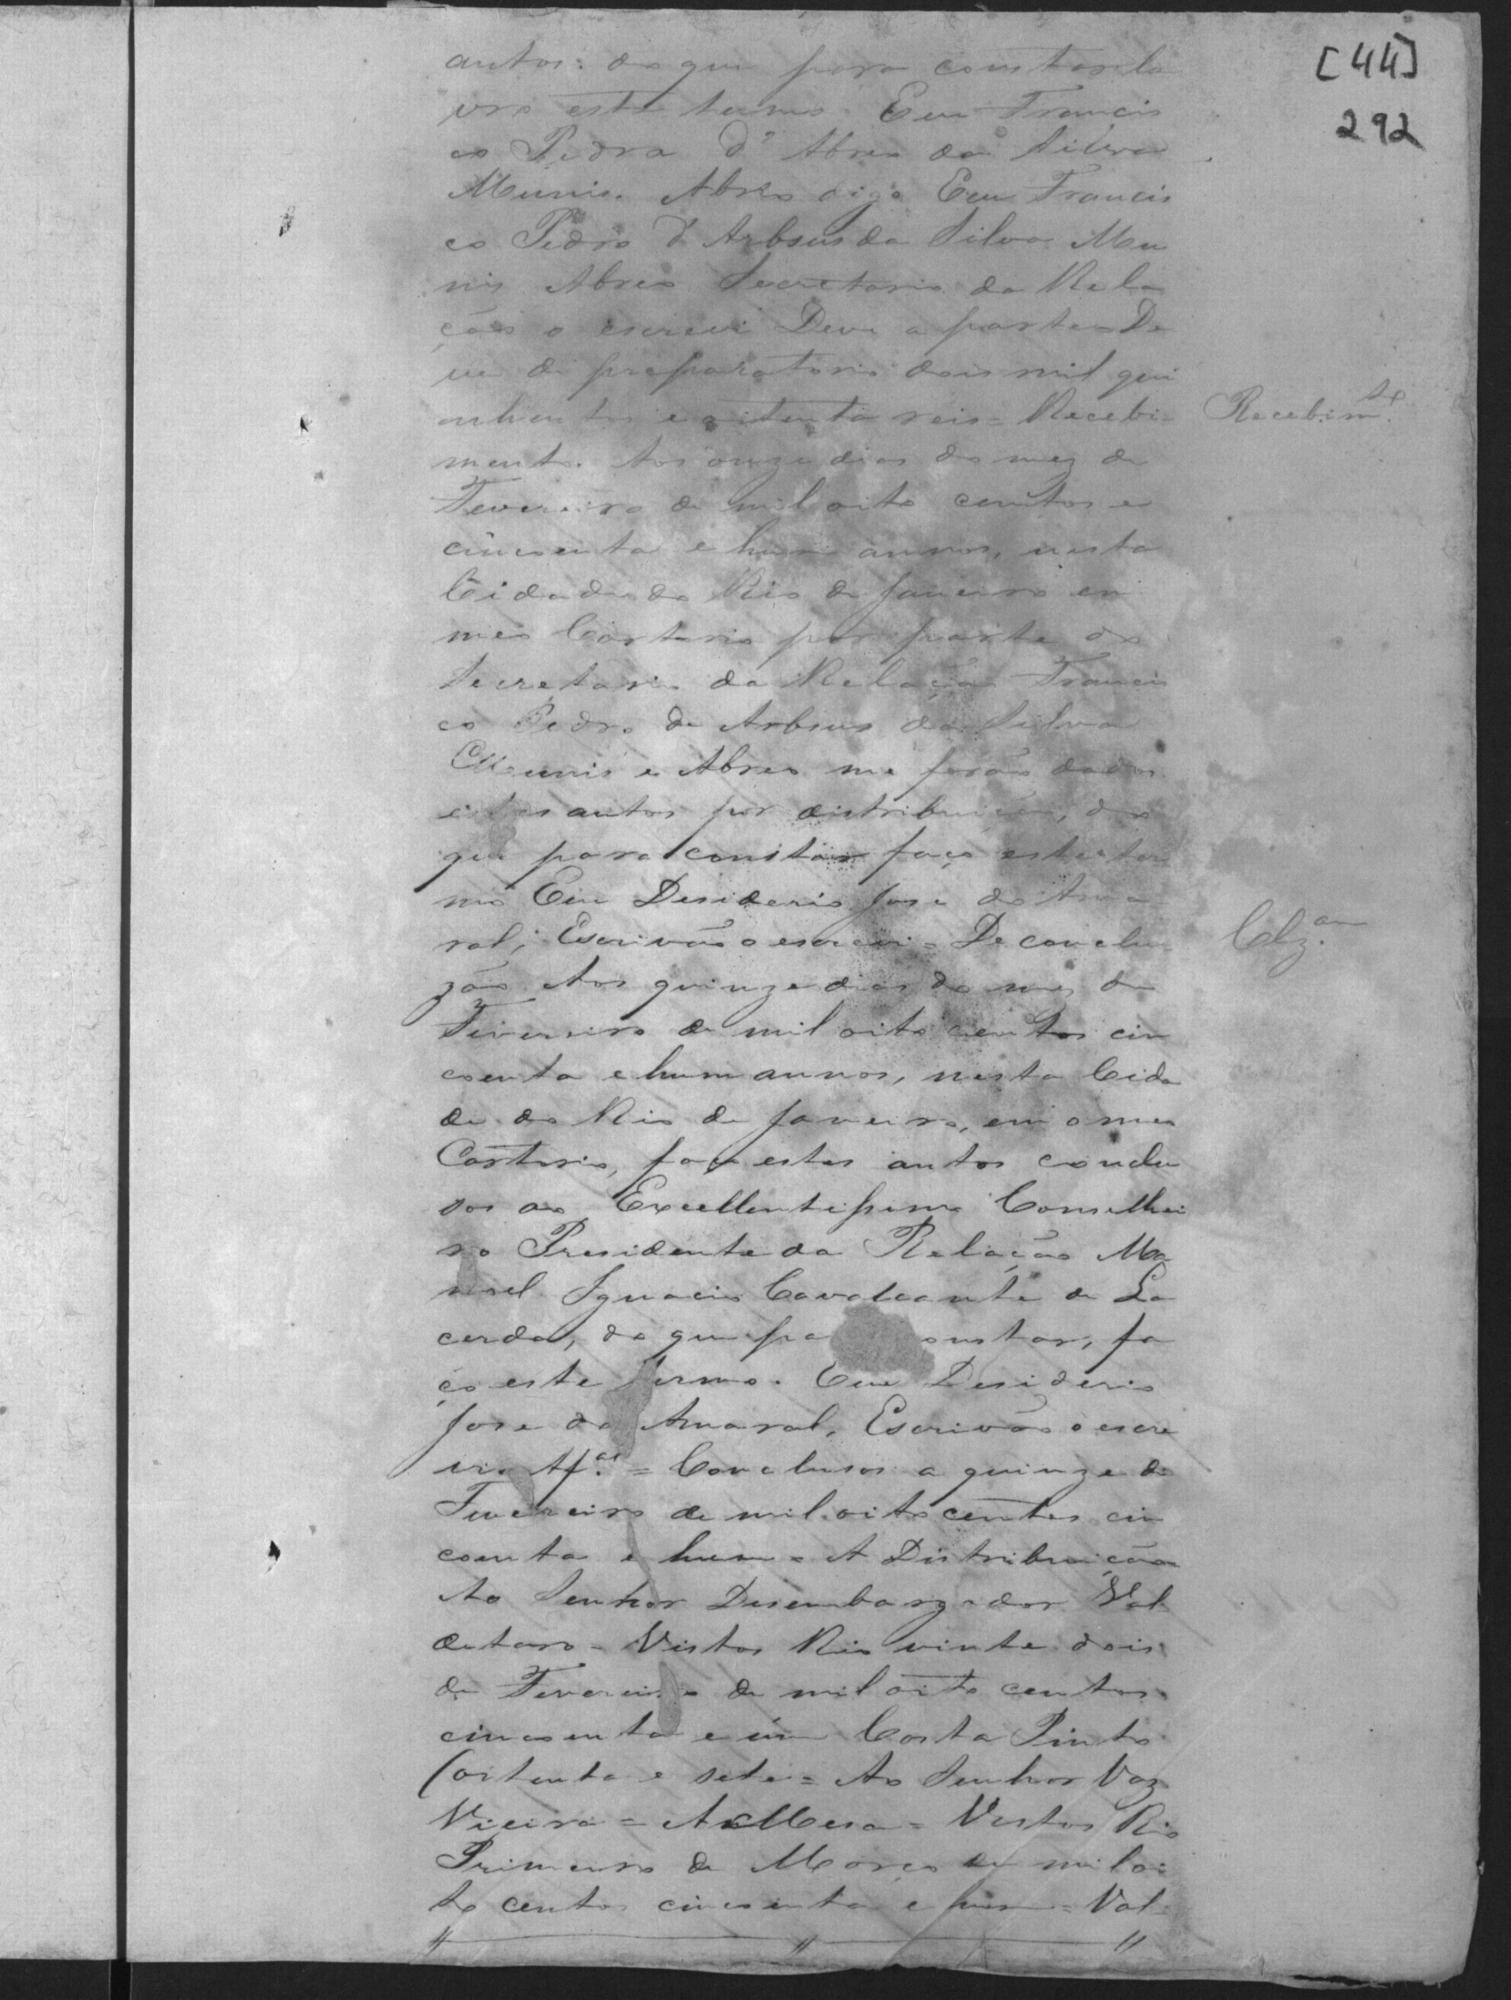 [44]
292
autos: do que para constar la
vro este termo. Eu Francis
co Pedro d' Abreo da Silva
Munis Abreo digo Eu Francis
co Pedro d'Arbues da Silva Mu
nis Abreo Secretario da Rela
ção o escrevi Deve a parte = De
ve de preparatorio dois mil qui
nhentos e oitenta reis = Recebi-
Recebim.to
mento. Aos onze dias do mez de
Fevereiro de mil oito centos e
cincoenta e hum annos, nesta
Cidade do Rio de Janeiro em
meo Cartorio por parte do
Secretario da Relação Francis
co Pedro de Arbues da Silva
Munis e Abreo me forão dados
estes autos por distribuição, do
que para constar faço este ter
mo Eu Desiderio Jose do Ama
ral, Escrivão o escrevi = De conclu
Clz.am
zão Aos quinze dias do mez de
Fevereiro de mil oito centos cin
coenta e hum annos, nesta Cida
de do Rio de Janeiro, em o meo
Cartorio, faço estes autos conclu
sos ao Excellentissimo Conselhei
ro Presidente da Relação Ma
noel Ignacio Cavalcante de La
cerda, do que pa onstar, fa
ço este termo. Eu Desiderio
Jose do Amaral, Escrivão o escre
vi = Conclusos a quinze de
Fevereiro de mil oito centos cin
coenta e hum = A Distribuição
Ao Senhor Desembargador Val
detaro = Vistos Rio vinte dois
de Fevereiro de mil oito centos
cincoenta e um Costa Pinto
(oitenta e sete = Ao Senhor Vaz
Vieira = A Mesa = Vistos Rio
Primeiro de Março de mil oi
to centos cincoenta e hum = Val
" " "